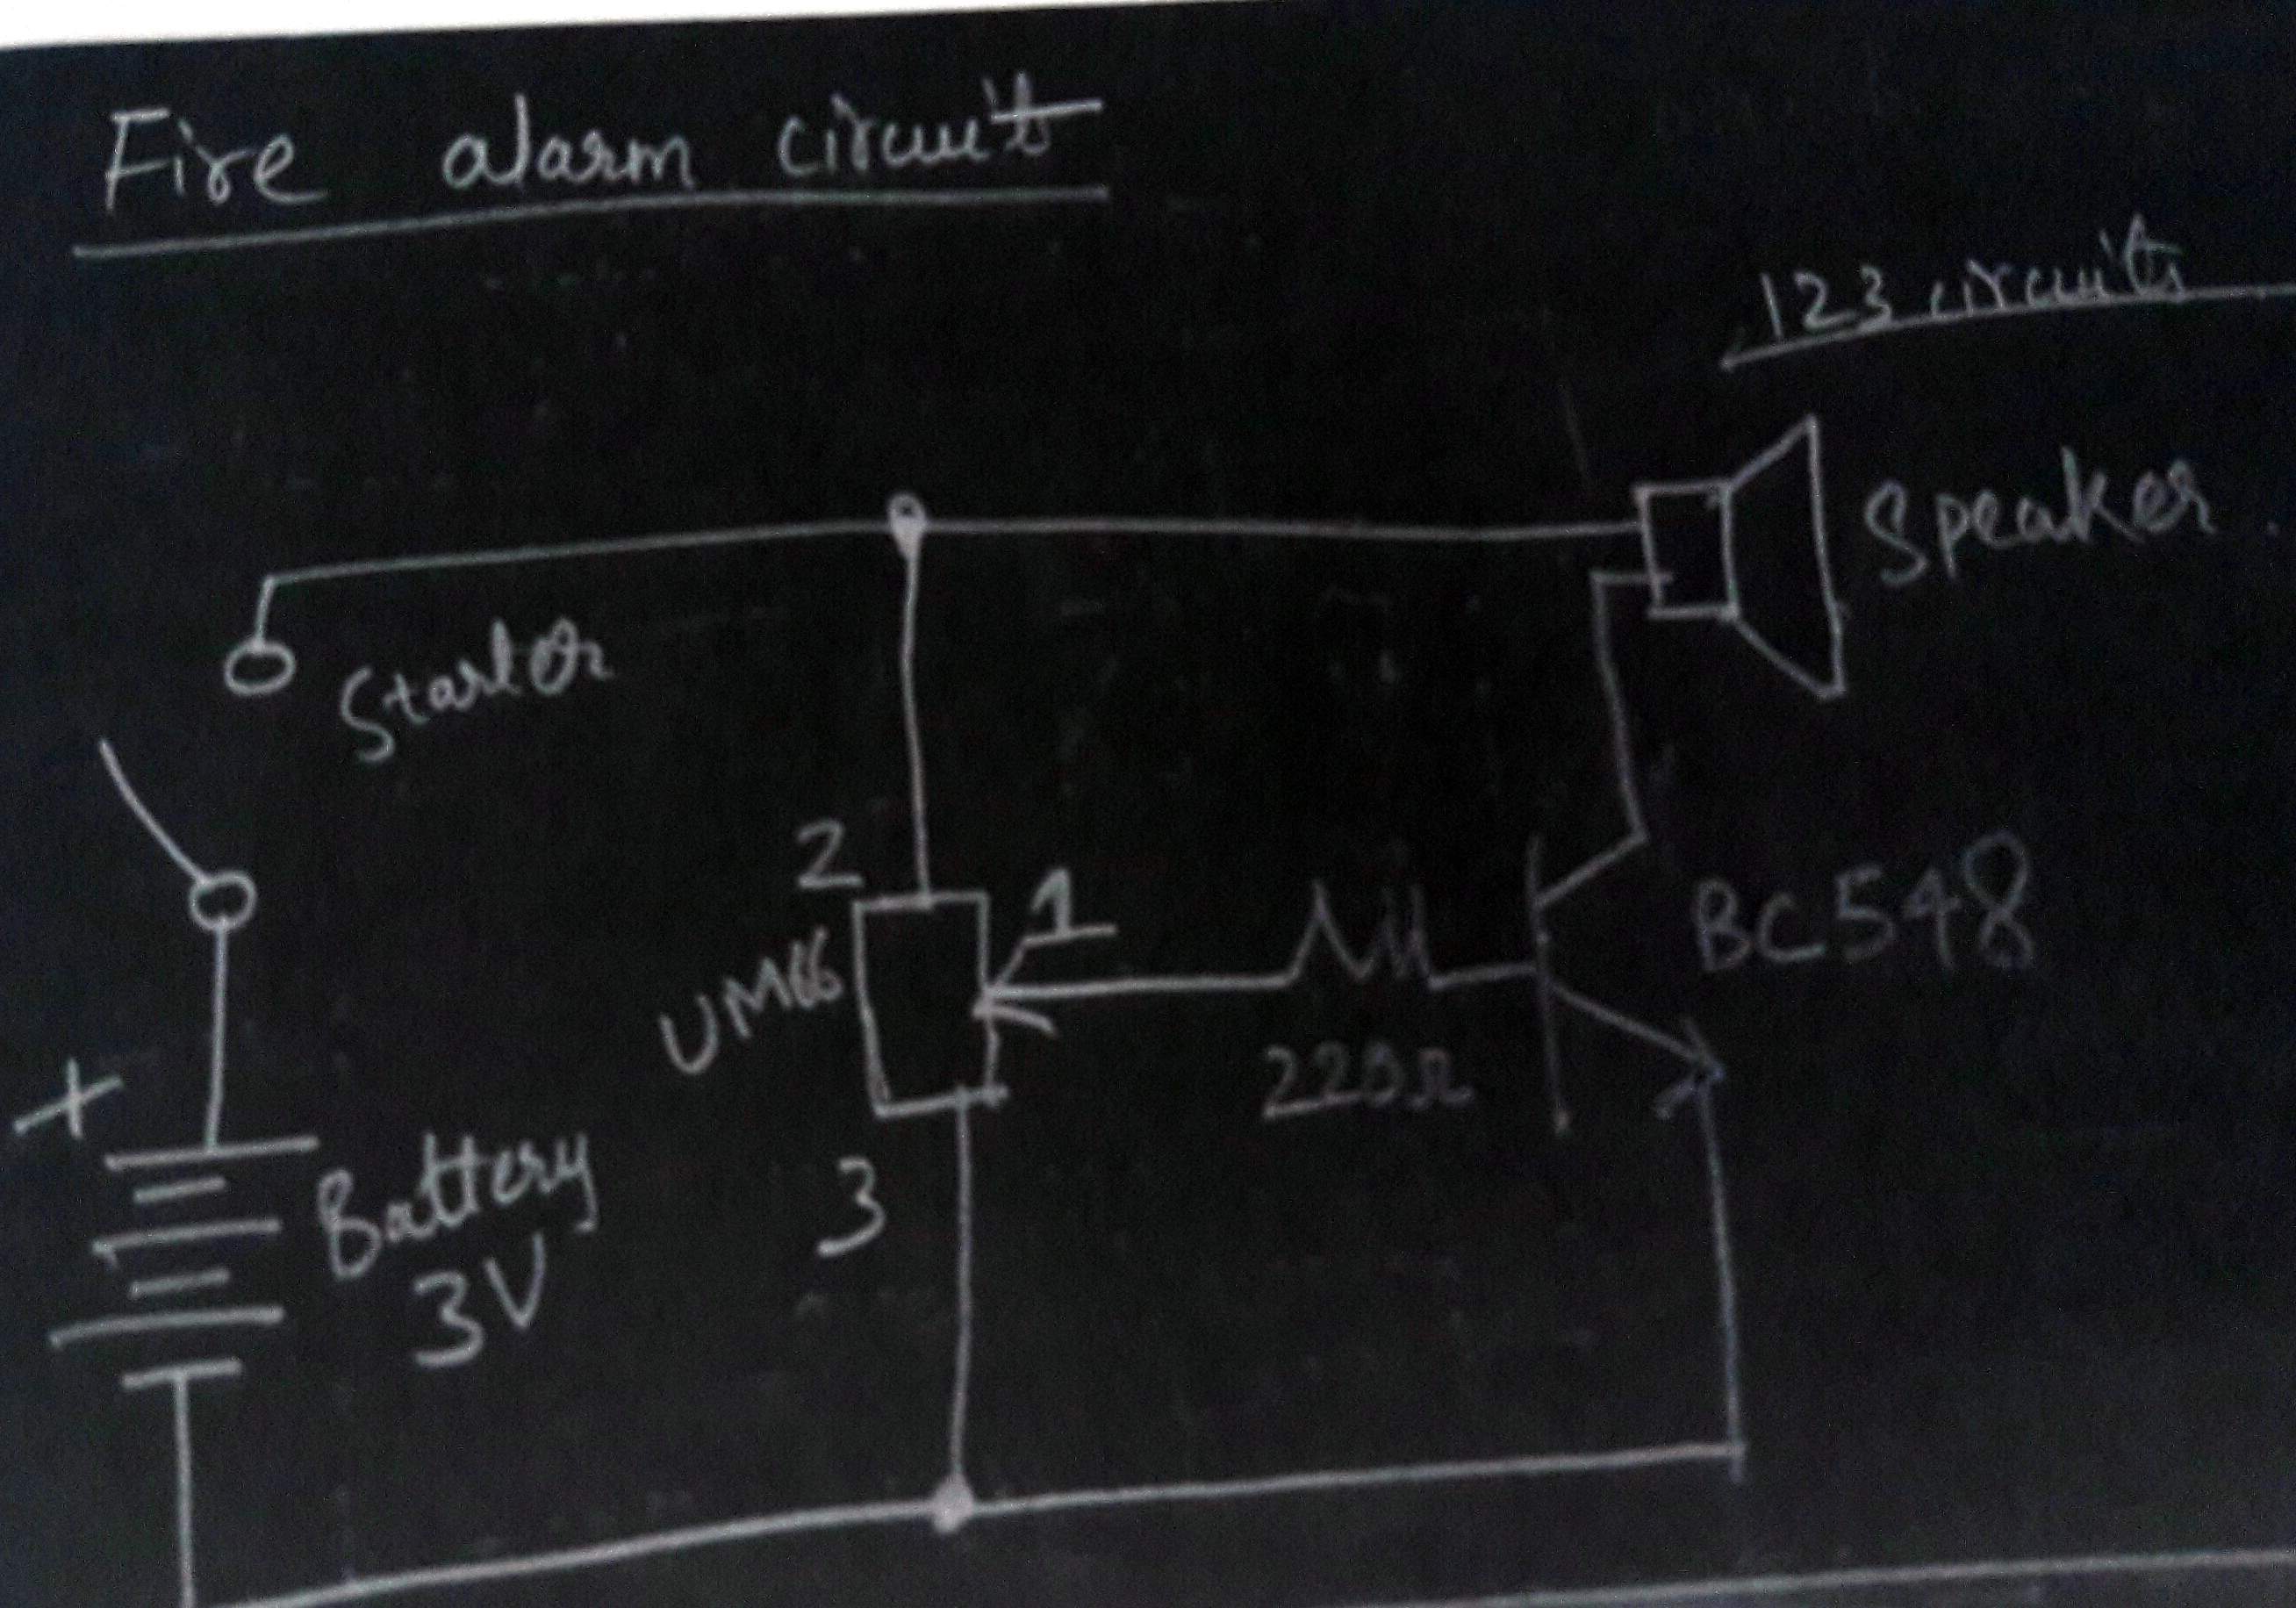 Fire alarm circuit
123 circuits
Speaker
Starter
2
1
UM66
BC548
220Ω
+
Battery
3V
3